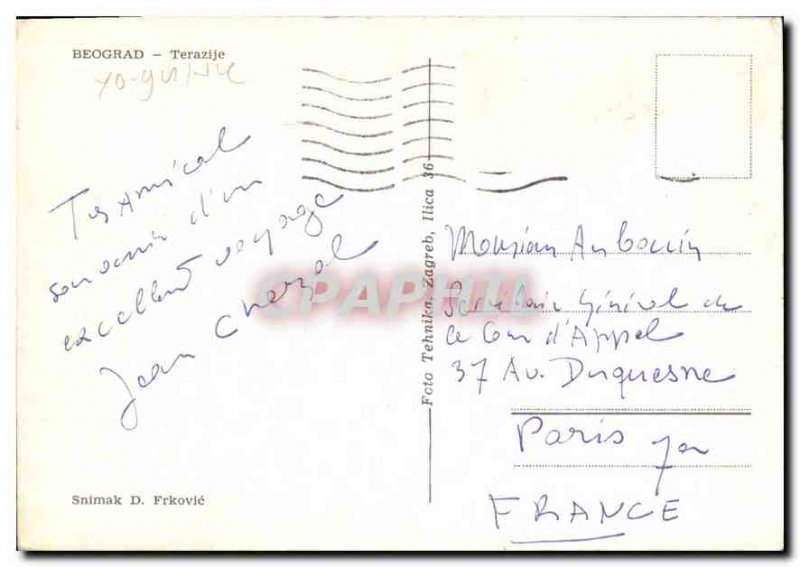 BEOGRAD – Terazije
Très Amical
souvenir d'un
excellent voyage
Jean
Snimak D. Frković
Foto Tehnika, Zagreb, Ilica 36
CPAPHIL
Monsieur
Secrétaire Général de
la Cour d'Appel
37 Av. Duquesne
Paris
FRANCE